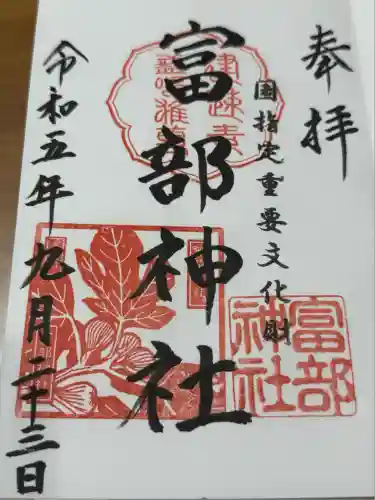 奉拝
国指定重要文化財
富部神社
令和五年九月二十三日
富部
神社